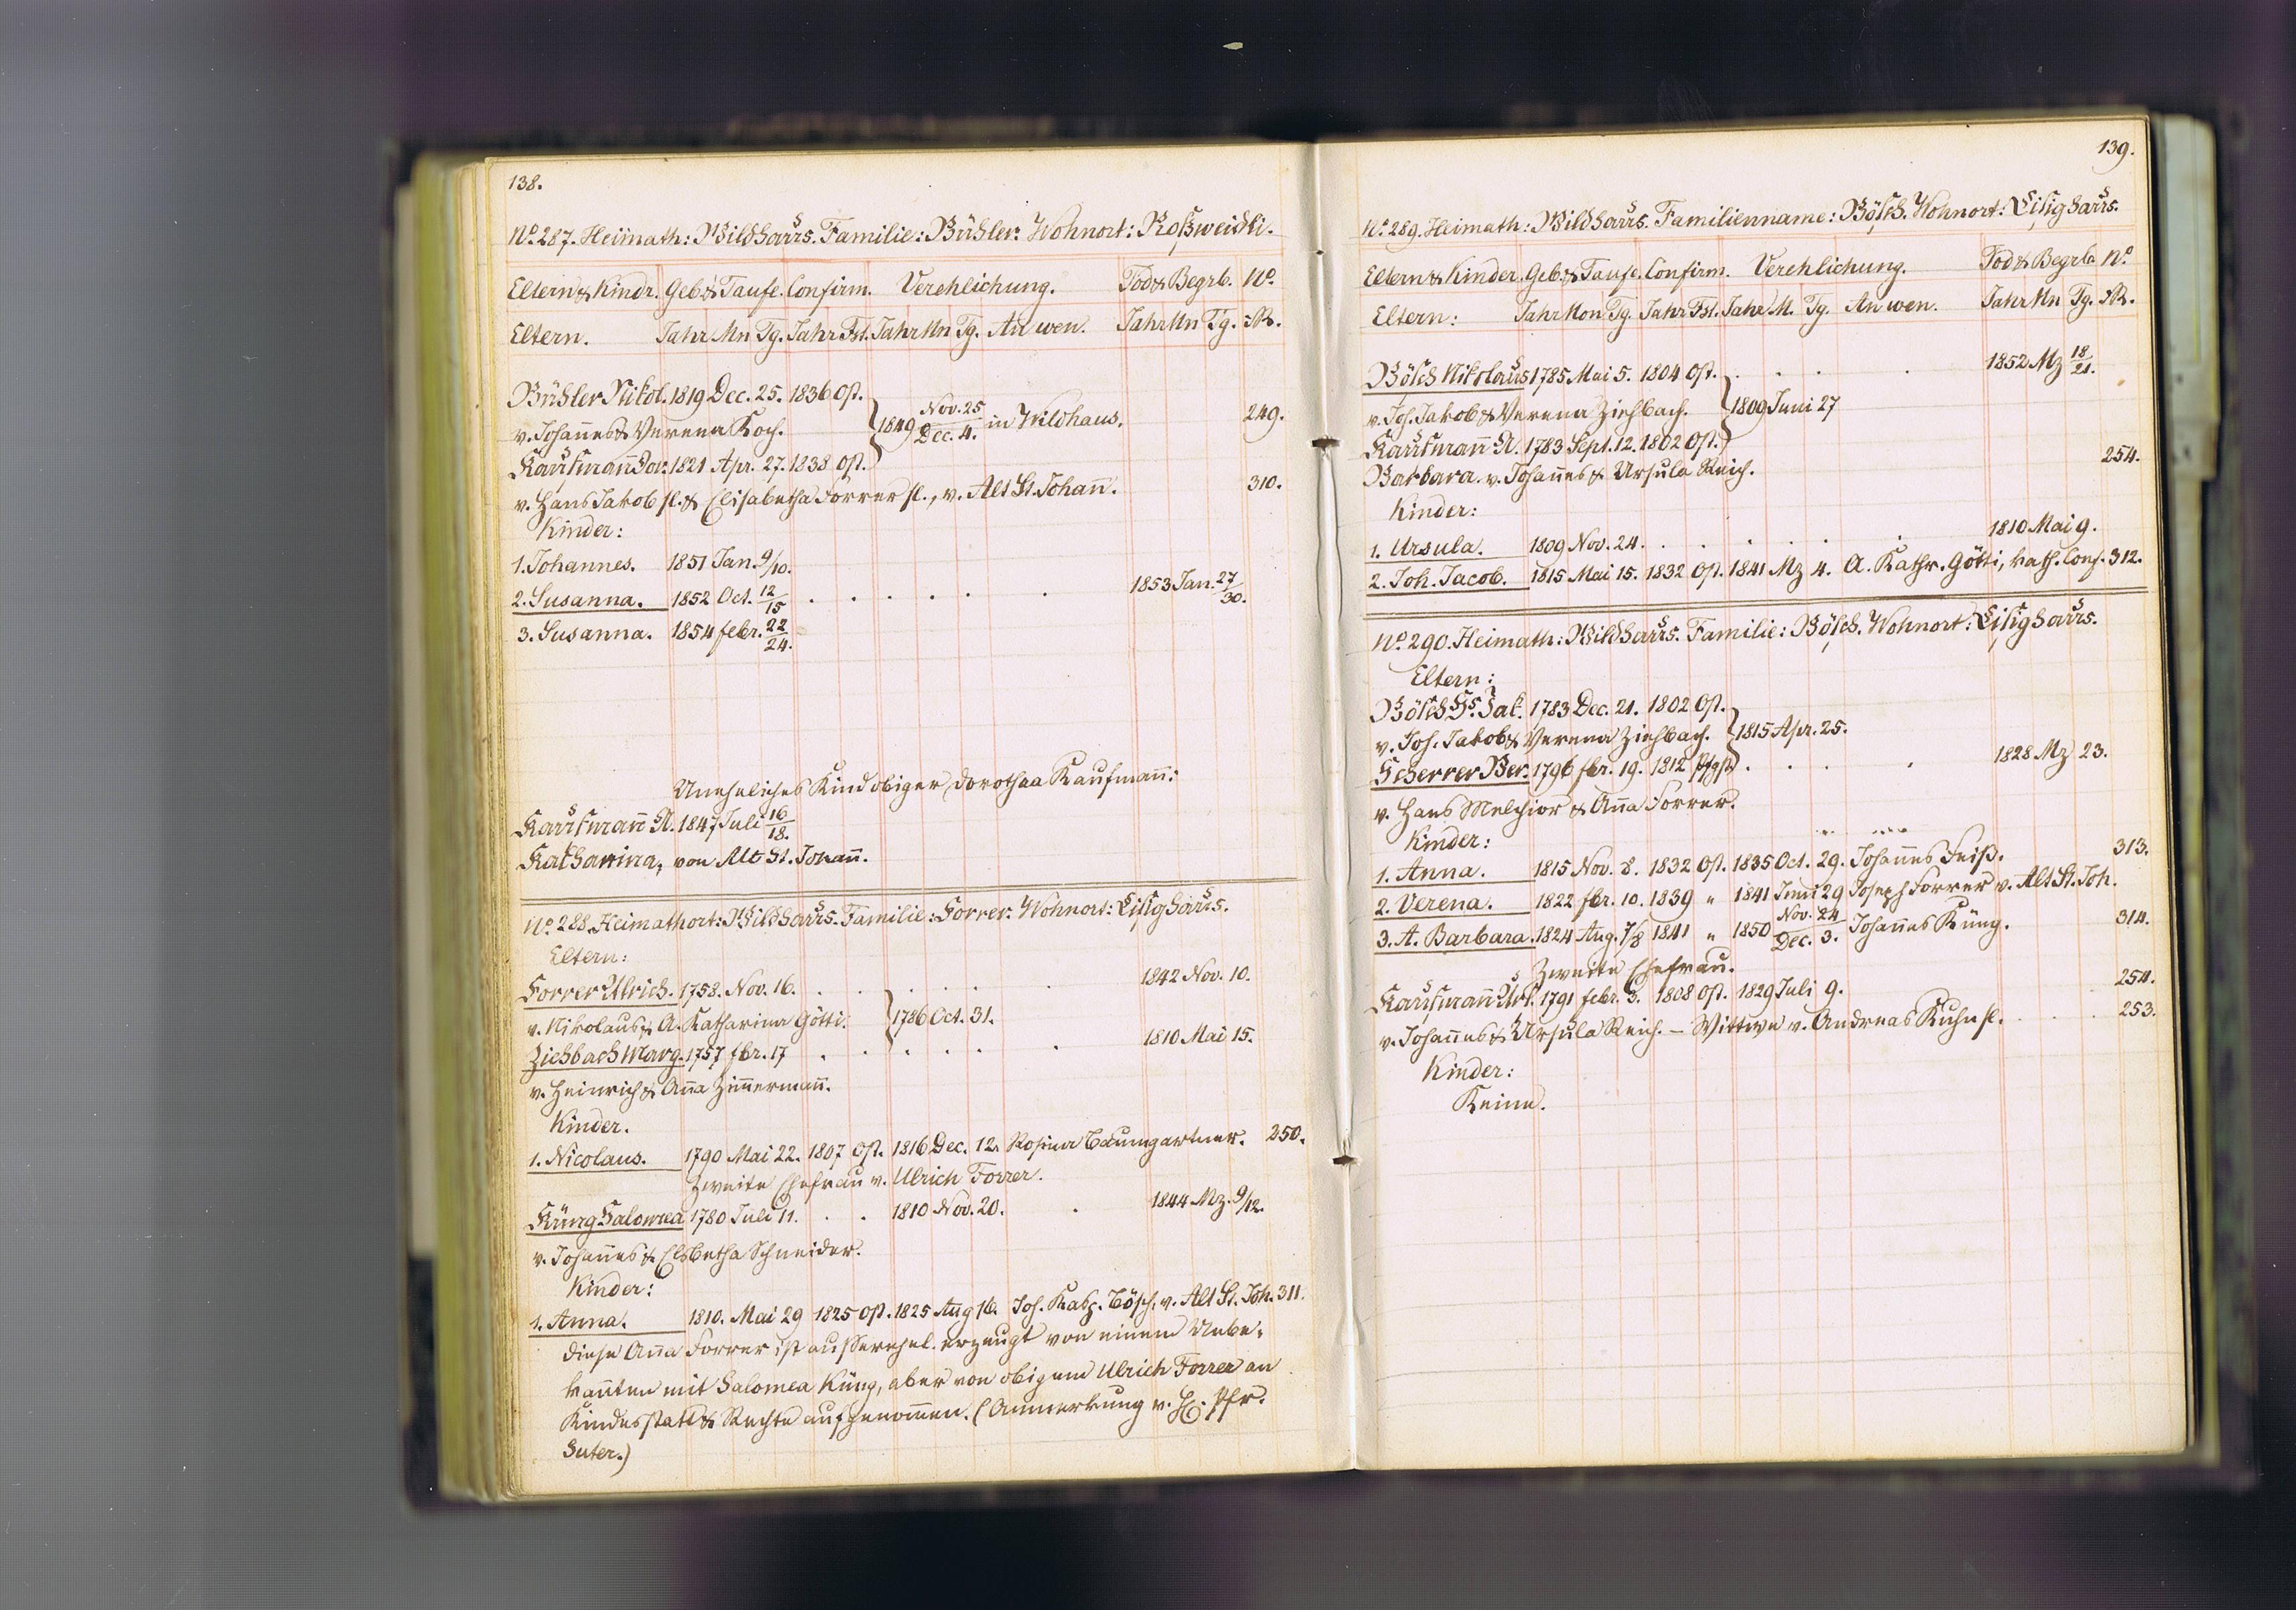 138.
No. 287. Heimath: Wildhaus. Familie: Bühler. Wohnort: Roßweidli.
Eltern & Kindr. Geb. & Taufe. Confirm. Verehlichung. Tod & Begrb. No.
Eltern. Jahr Mn Tg. Jahr Fst. Jahr Mn Tg. An wen. Jahr Mn Tg. R.
Bühler Nikol. 1819 Dec. 25. 1836 Ost.
v. Johannes & Verena Koch. 1849 Nov. 25 / Dec. 4. in Wildhaus. 249.
Kaufmann Dor. 1821 Apr. 27. 1838 Ost.
v. Hans Jakob sl. & Elisabetha Forrer sl., v. Alt St. Johann. 310.
Kinder:
1. Johannes. 1851 Jan. 9/10.
2. Susanna. 1852 Oct. 12/15 . . . . . . 1853 Jan. 27/30.
3. Susanna. 1854 febr. 22/24.
Uneheliches Kind obiger Dorothea Kaufmann:
Kaufmann A. 1847 Juli 16/18.
Katharina, von Alt St. Johann.
No. 288. Heimathort: Wildhaus. Familie: Forrer. Wohnort: Lisighaus.
Eltern:
Forrer Ulrich. 1758. Nov. 16. . . . . . . 1842 Nov. 10.
v. Nikolaus & A. Katharina Götti. 1786 Oct. 31.
Ziehbach Marg. 1757 fbr. 17 . . . . . . 1810 Mai 15.
v. Heinrich & Anna Zimmermann.
Kinder.
1. Nicolaus. 1790 Mai 22. 1807 Ost. 1816 Dec. 12. Rosina Baumgartner. 250.
Zweite Ehefrau v. Ulrich Forrer.
Küng Salomea 1780 Juli 11. . . 1810 Nov. 20. . 1844 Mz. 9/12.
v. Johannes & Elsbetha Schneider.
Kinder:
1. Anna. 1810. Mai 29 1825 Ost. 1825 Aug 16. Joh. Kasp. Bösch, v. Alt St. Joh. 311.
Diese Anna Forrer ist ausserehel. erzeugt von einem Unbe-
kannten mit Salomea Küng, aber von obigem Ulrich Forrer an
Kindesstatt & Rechte aufgenommen. (Anmerkung v. H. Pfr.
Suter.)
139.
No. 289. Heimath: Wildhaus. Familienname: Bösch. Wohnort: Lisighaus.
Eltern & Kinder. Geb. & Taufe. Confirm. Verehlichung. Tod & Begrb. No.
Eltern: Jahr Mon Tg. Jahr Fst. Jahr M. Tg. An wen. Jahr Mn Tg. R.
Bösch Nikolaus 1785 Mai 5. 1804 Ost. . . . . 1852 Mz 18/21.
v. Joh. Jakob & Verena Ziehbach. 1809 Juni 27
Kaufmann A. 1783 Sept. 12. 1802 Ost.
Barbara v. Johannes & Ursula Reich. 254.
Kinder:
1. Ursula. 1809 Nov. 24. . . . . . . 1810 Mai 9.
2. Joh. Jacob. 1815 Mai 15. 1832 Ost. 1841 Mz 4. A. Kathr. Götti, kath. Conf. 312.
No. 290. Heimath: Wildhaus. Familie: Bösch. Wohnort: Lisighaus.
Eltern:
Bösch Hs. Jak. 1783 Dec. 21. 1802 Ost.
v. Joh. Jakob & Verena Ziehbach. 1815 Apr. 25.
Scherrer Ver. 1796 fbr. 19. 1812 Pfgst . . . . 1828 Mz 23.
v. Hans Melchior & Anna Forrer.
Kinder:
1. Anna. 1815 Nov. 8. 1832 Ost. 1835 Oct. 29. Johannes Feiß. 313.
2. Verena. 1822 fbr. 10. 1839 " 1841 Juni 29 Joseph Forrer v. Alt St. Joh.
3. A. Barbara. 1824 Aug. 7/8 1841 " 1850 Nov. 24 / Dec. 3. Johannes Küng. 314.
Zweite Ehefrau.
Kaufmann Urs. 1791 febr. 3. 1808 Ost. 1829 Juli 9. 254.
v. Johannes & Ursula Reich. – Wittwe v. Andreas Kuhn sl. . . . . 253.
Kinder:
Keine.